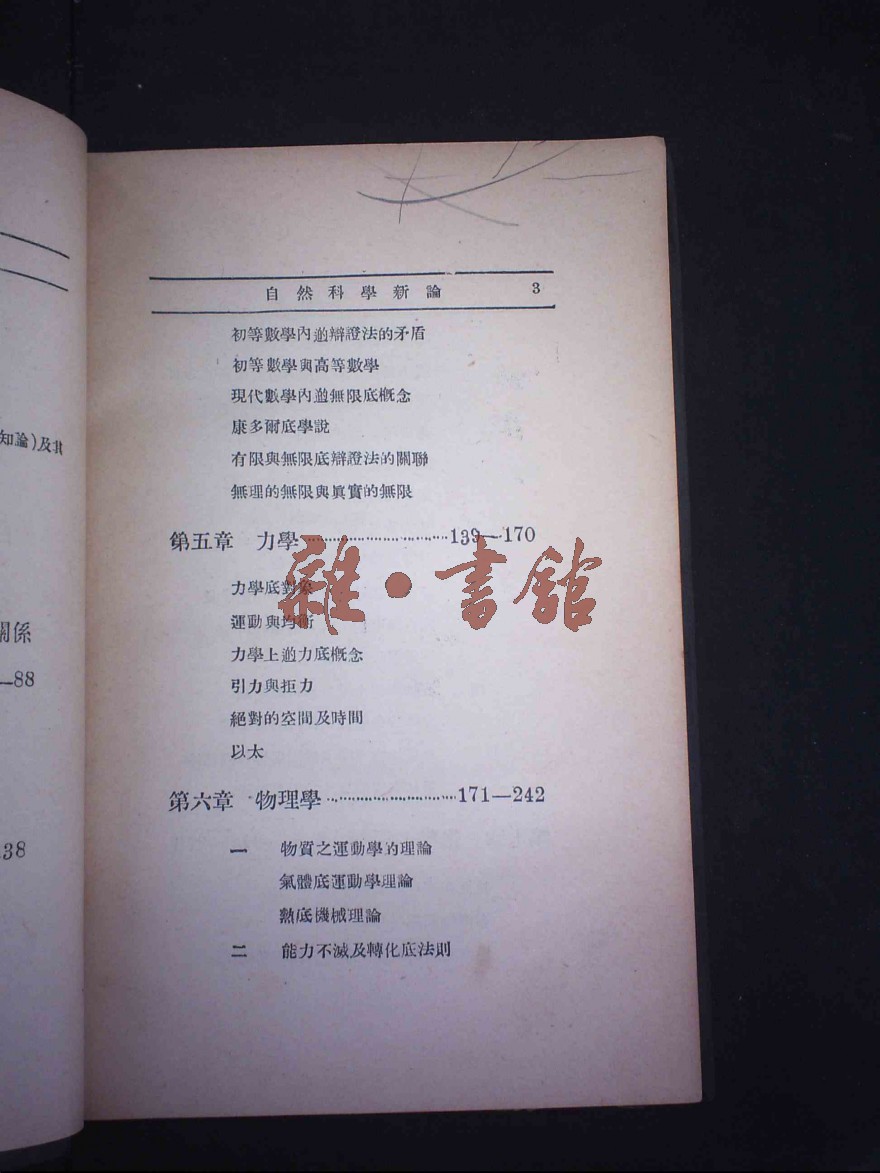 知論)及其
關係
—88
38
自然科學新論 3
初等數學內的辯證法的矛盾
初等數學與高等數學
現代數學內的無限底概念
康多爾底學說
有限與無限底辯證法的關聯
無理的無限與眞實的無限
第五章 力學 139—170
力學底對象
運動與均衡
力學上的力底概念
引力與拒力
絕對的空間及時間
以太
第六章 物理學 171—242
一 物質之運動學的理論
氣體底運動學理論
熱底機械理論
二 能力不滅及轉化底法則
雜·書館